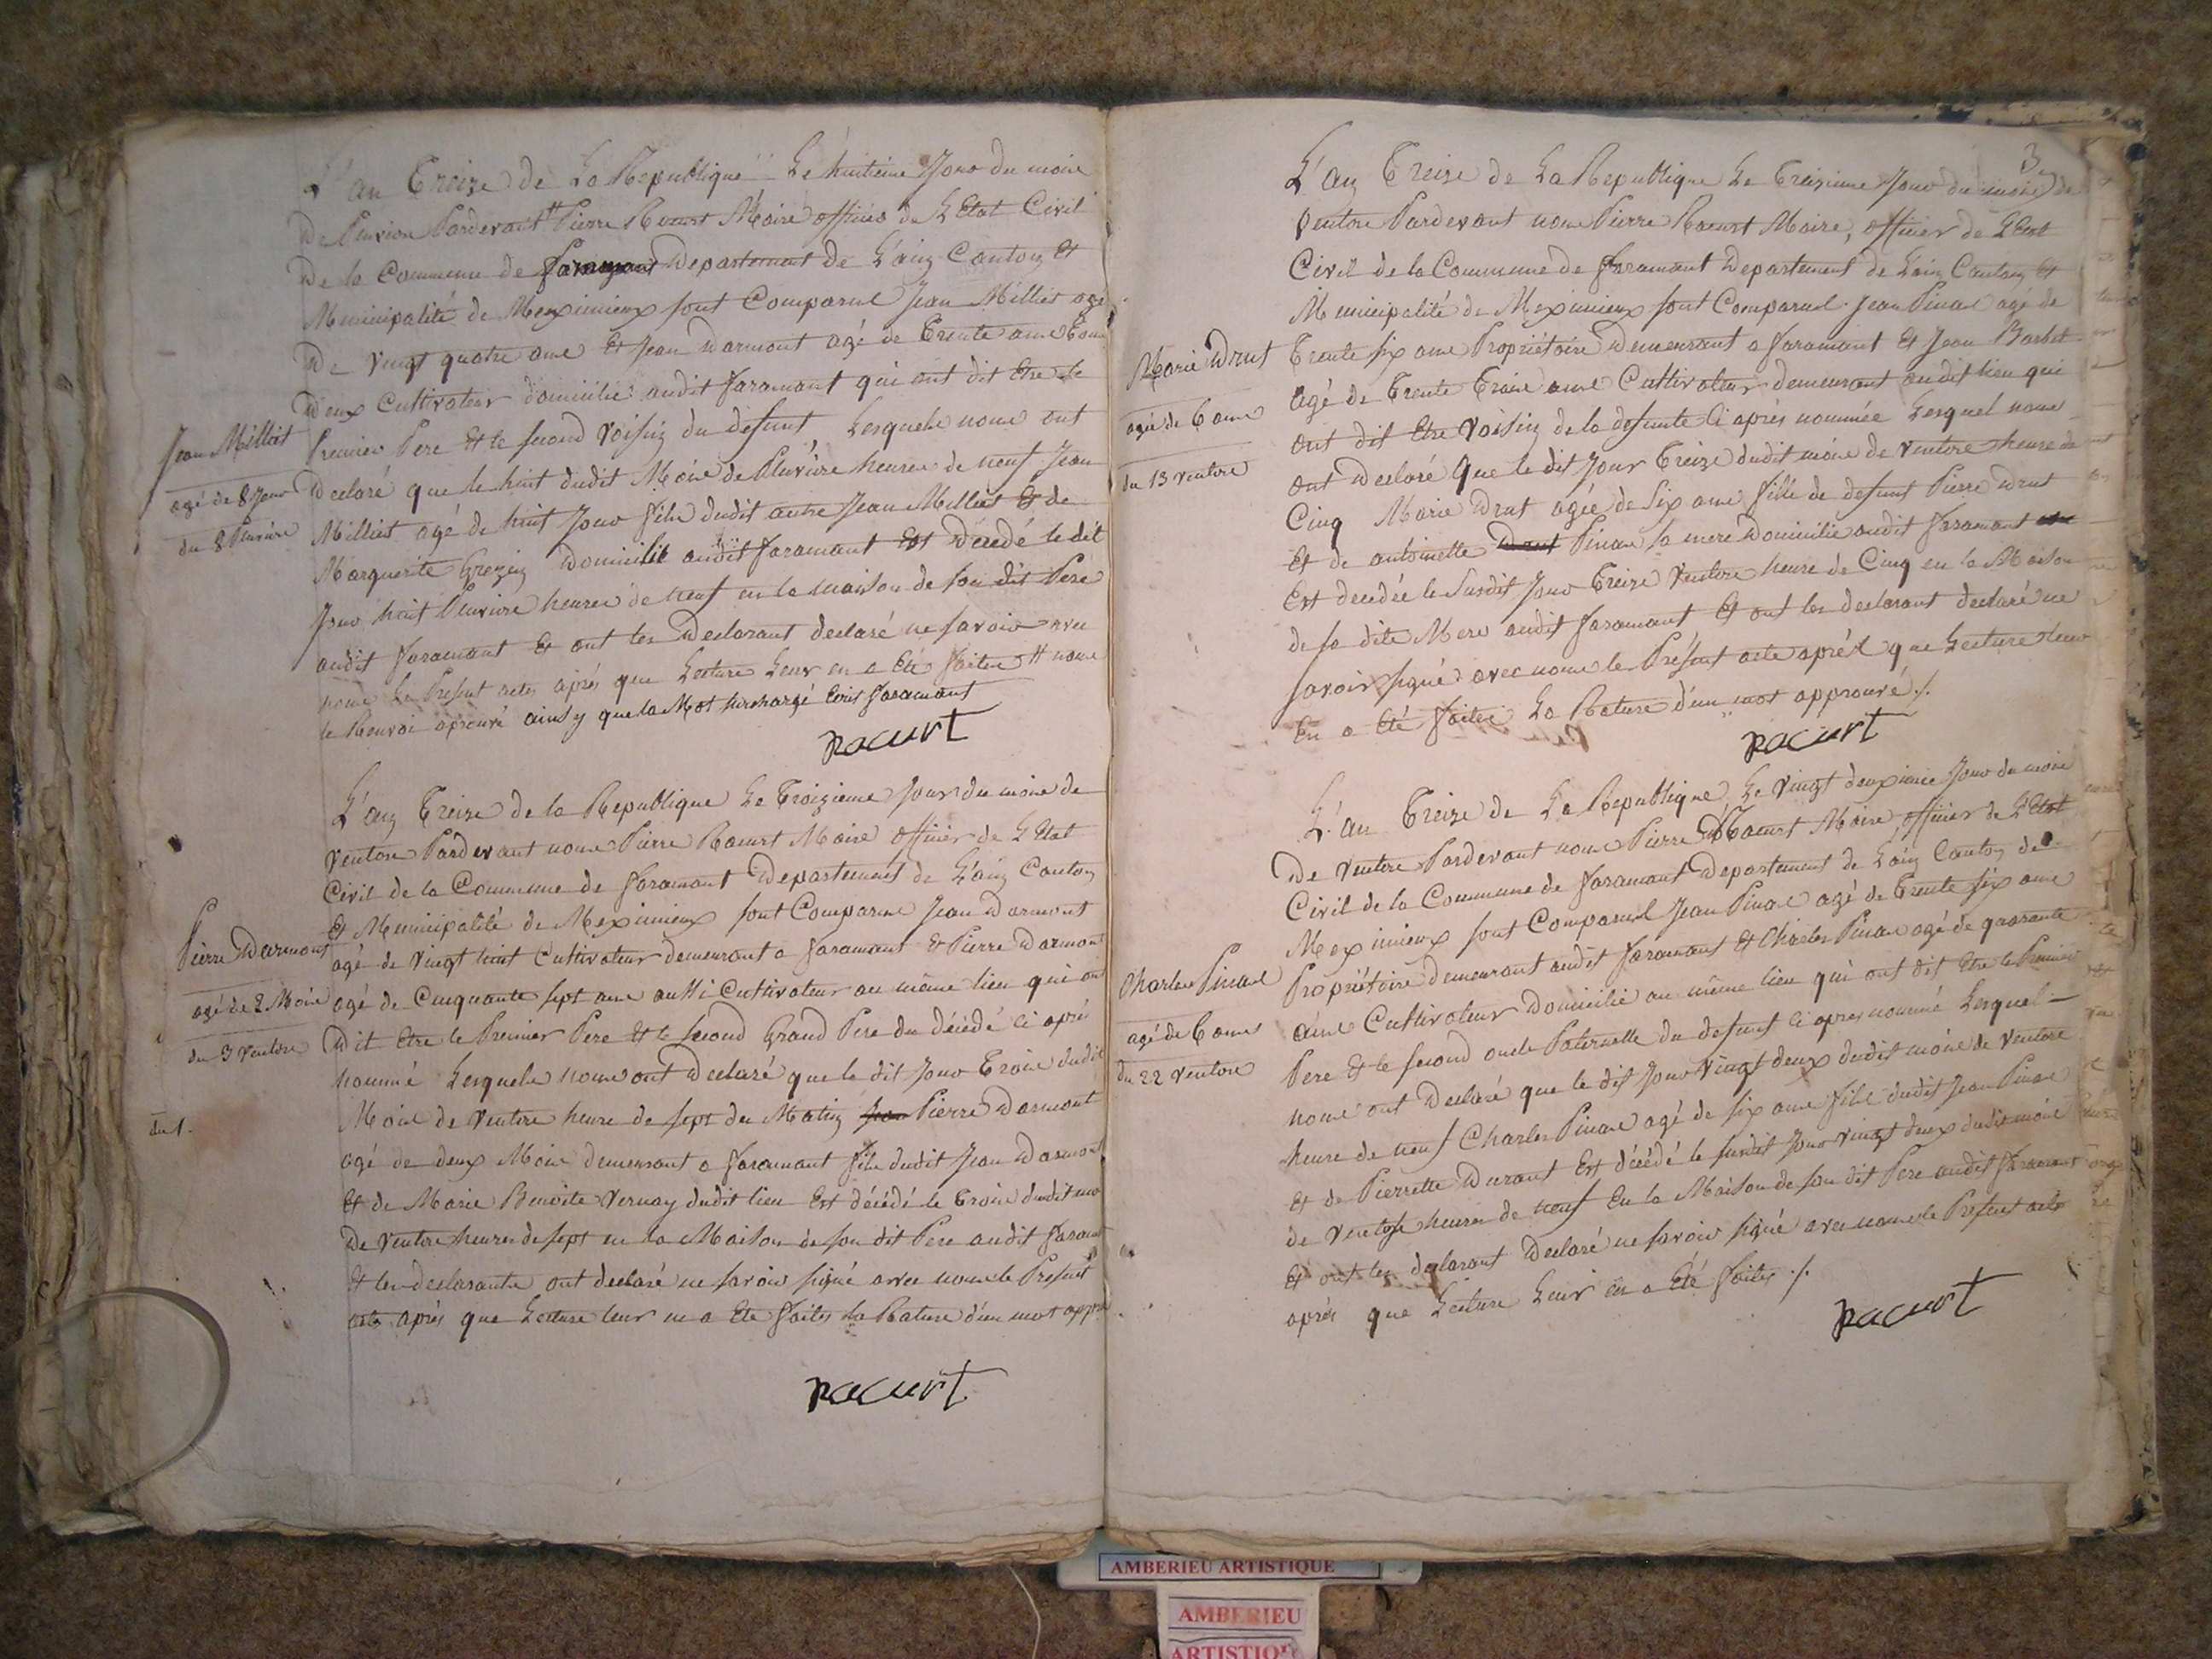 L'an Treize de La Republique Le huitieme Jour du moine
De Pluviose Pardevant # Pierre Racurt Maire officier de L'Etat Civil
De la Commune de faramant Departement de L'ain Canton Et
Municipalité de Meximieux sont Comparus Jean Milliat agé
De vingt quatre ans Et Jean Darmont agé de Trente ans tous
Deux Cultivateur domicilié audit faramant qui ont dit Etre le
Premier Pere Et le second Voisin du defunt Lesquels nous ont
Declaré que le huit dudit Mois de Pluviose heures de neuf Jean
Milliat agé de huit Jour fils dudit autre Jean Milliat Et de
Marguerite Domicilié audit faramant Est Décédé le dit
Jour huit Pluviose heures de neuf en la maison de son dit Pere
audit faramant Et ont les Declarant declaré ne savoir avec
nous Le Present acte après que Lecture Leur en a Eté faitte # nous
le Renvoi aprouvé ainsy que le Mot surchargé Ecris faramant
Racurt
Jean Milliat
agé de 8 Jour
du 8 Pluviose
L'an Treize de la Republique Le Troizieme Jour du mois de
Ventose Pardevant nous Pierre Racurt Maire officier de L'Etat
Civil de la Commune de faramant Departement de L'ain Canton
Et Municipalité de Meximieux sont Comparus Jean Darmont
agé de vingt huit Cultivateur demeurant a faramant Et Pierre Darmont
agé de Cinquante sept ans aussi Cultivateur au même lieu qui ont
Dit Etre le Premier Pere Et le second Grand Pere du Décédé ci après
nommé Lesquels nous ont Declaré que le dit Jour Trois dudit
Mois de Ventose heure de sept du Matin Jean Pierre Darmont
agé de deux Mois demeurant a faramant fils dudit Jean Darmont
Et de Marie Benoite Vernay dudit lieu Est décédé le Trois dudit mois
De Ventose heures de sept en La Maison de son dit Pere audit faramant
Et les declarants ont declaré ne savoir signé avec nous le Present
acte après que Lecture leur en a Eté faites La Rature d'un mot appr
Racurt
Pierre Darmont
agé de 2 Mois
du 3 Ventose
du 1.
3
L'an Treize de La Republique Le Treizieme Jour du mois de
Ventose Pardevant nous Pierre Racurt Maire, officier de L'Etat
Civil de la Commune de faramant Departement de L'ain Canton Et
Municipalité de Meximieux sont Comparus Jean Pinard agé de
Trente six ans Propriétaire Demeurant a faramant Et Jean Barbet
agé de Trente Trois ans Cultivateur demeurant audit lieu qui
ont dit Etre Voisin de la defunte Ci après nommée Lesquel nous
ont Declaré Que le dit Jour Treize dudit mois de Ventose heure de
Cinq Marie Drut agée de Six ans fille de defunt Pierre Drut
Et de antoinette Drut Pinard sa mere Domicilié audit faramant
Est decedée le Susdit Jour Treize Ventose heure de Cinq en la Maison
de sa dite Mere audit faramant Et ont les declarant declaré ne
savoir signé avec nous le Présent acte après que Lecture Leur
En a Eté faites La Rature d'un mot approuvé ./.
Racurt
Marie Drut
agée de 6 ans
du 13 Ventose
L'an Treize de La Republique, Le Vingt deuxieme Jour du mois
De Ventose Pardevant nous Pierre Racurt Maire, officier de L'Etat
Civil de la Commune de faramant Departement de L'ain Canton de
Meximieux sont Comparus Jean Pinard agé de Trente six ans
Propriétaire demeurant audit faramant Et Charles Pinard agé de quarante
ans Cultivateur Domicilié au même lieu qui ont dit Etre le Premier
Pere Et le second oncle Paternelle du defunt ci apres nommé Lesquel
nous ont Declaré que le dit Jour Vingt deux dudit mois de Ventose
heure de neuf Charles Pinard agé de six ans fils dudit Jean Pinard
Et de Pierrette Durant Est décédé le susdit Jour vingt deux dudit mois
de Ventose heures de neuf En la Maison de son dit Pere audit faramant
Et ont les declarant Declaré ne savoir signé avec nous le Present acte
après que Lecture Leur en a Eté faites ./.
Racurt
Charles Pinard
agé de 6 ans
du 22 Ventose
AMBERIEU ARTISTIQUE
AMBERIEU
ARTISTIQ